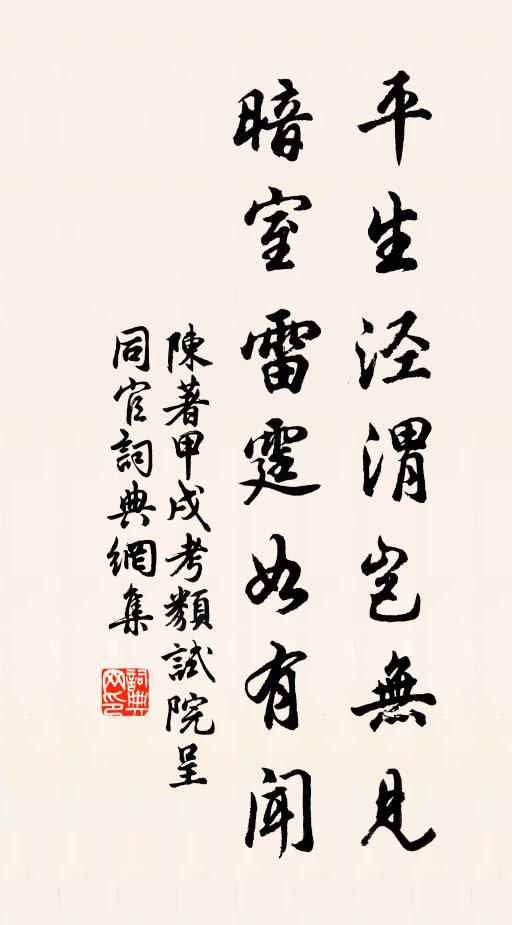 平生涇渭豈無見
暗室雷霆如有聞
陳著甲戌考類試院呈
同官詞典網集
詞典
网印